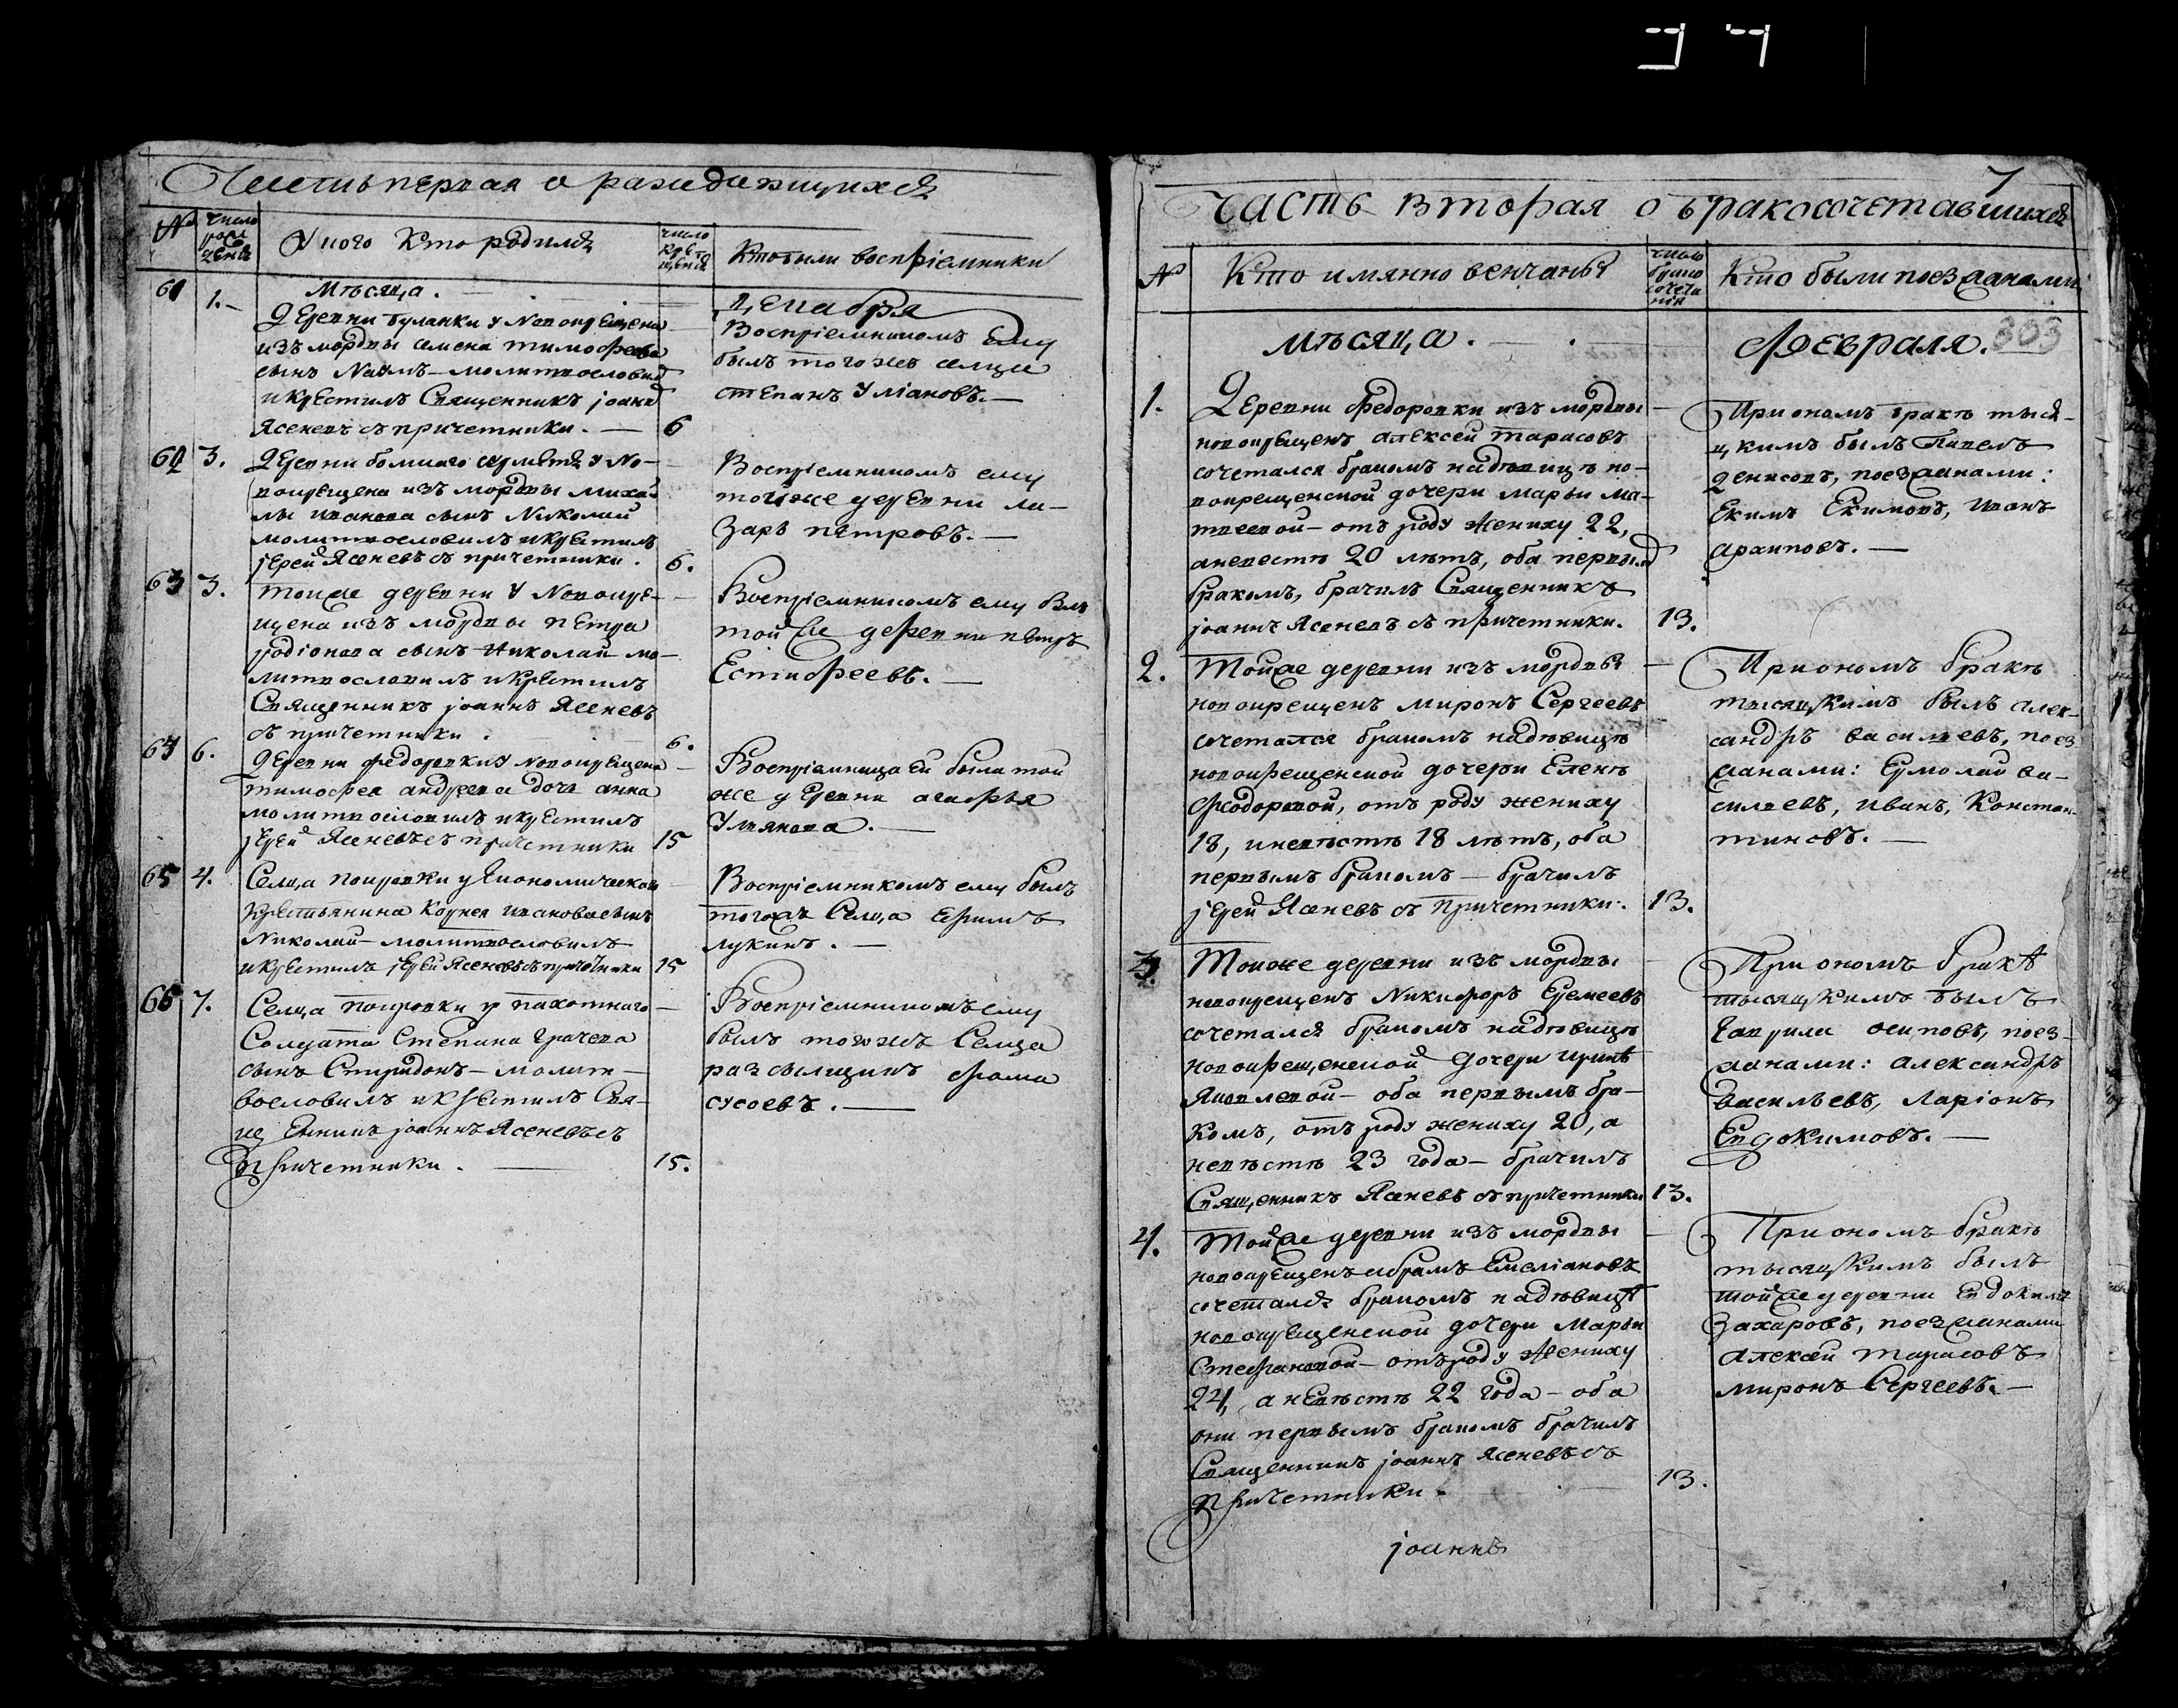 Часть первая о раждающихся
№
число рожденія
У кого кто родился
число крещенія
Кто были воспріемники
Мѣсяца. Декабря
61 1. Деревни Буланки у новокрещена
изъ мордвы семена тимофеева
сынъ Наумъ – молитвословилъ
и крестилъ Священникъ іоаннъ
Ясеневъ съ причетники. — 6
Воспріемникомъ ему
былъ тогожъ селца
степанъ Уліановъ. —
62 3. Деревни болшаго у но-
вокрещена изъ мордвы михай
лы иванова сынъ Николай
молитвословилъ и крестилъ
іерей Ясеневъ съ причетники. 6.
Воспріемникомъ ему
тойже деревни ла-
заръ петровъ. —
63 3. тойже деревни у новокре-
щена изъ мордвы петра
родіонова сынъ Николай мо-
литвословилъ и крестилъ
Священникъ іоаннъ Ясеневъ
съ причетники. 6.
Воспріемникомъ ему былъ
тойже деревни петръ
Естифеевъ. —
64 6. Деревни федоровки у новокрещена
тимофея андреева дочь анна
молитвословилъ и крестилъ
іерей Ясеневъ съ причетники 15
Воспріемница ей была той
же деревни агафья
Ульянова. —
65 4. Селца покровки у Економическаго
крестьянина Корнея иванова сынъ
Николай – молитвословилъ
и крестилъ іерей Ясеневъ съ причетники 15
Воспріемникомъ ему былъ
тогожъ Селца ефимъ
лукинъ. —
66 7. Селца покровки у пахотнаго
Солдата Степана Грачева
сынъ Спиридонъ – молит-
вословилъ и крестилъ Свя-
щенникъ іоаннъ Ясеневъ съ
причетники. — 15.
Воспріемникомъ ему
былъ тогожъ Селца
разсыльщикъ фома
сусоевъ. —
7
Часть вторая о бракосочетавшихся
№
Кто имянно венчаны
число бракосочетанія
Кто были поезжанами
303
мѣсяца. Февраля.
1. Деревни Федоровки изъ мордвы
новокрещенъ алексей тарасовъ
сочетался бракомъ на дѣвицѣ но-
вокрещенской дочери марьи ма-
твеевой – отъ роду жениху 22,
а невестѣ 20 лѣтъ, оба первымъ
бракомъ, брачилъ Священникъ
іоаннъ Ясеневъ съ причетники. 13.
При ономъ бракѣ тыся-
цкимъ былъ Павелъ
денисовъ, поезжанами:
Екимъ Екимовъ, иванъ
архиповъ. —
2. Тойже деревни изъ мордвы
новокрещенъ миронъ Сергеевъ
сочетался бракомъ на дѣвицѣ
новокрещенской дочери Еленѣ
Федоровой, отъ роду жениху
18, и невѣстѣ 18 лѣтъ, оба
первымъ бракомъ — брачилъ
іерей Ясеневъ съ причетники. 13.
При ономъ бракѣ
тысяцкимъ былъ алек-
сандръ васильевъ, поез
жанами: Ермолай ва-
сильевъ, иванъ, Констан-
тиновъ. —
3. Тойже деревни изъ мордвы
новокрещенъ Никифоръ Еремеевъ
сочетался бракомъ на дѣвицѣ
новокрещенской дочери иринѣ
Яковлевой – оба первымъ бра-
комъ, отъ роду жениху 20, а
невѣстѣ 23 года – брачилъ
Священникъ Ясеневъ съ причетники 13.
При ономъ бракѣ
тысяцкимъ былъ
Гаврила осиповъ, поез
жанами: александръ
васильевъ, Ларіонъ
Евдокимовъ. —
4. Тойже деревни изъ мордвы
новокрещенъ абрамъ Емеліановъ
сочетался бракомъ на дѣвицѣ
новокрещенской дочери Марьи
Стефановой – отъ роду жениху
24, а невѣстѣ 22 года – оба
они первымъ бракомъ брачилъ
Священникъ іоаннъ Ясеневъ съ
причетники. 13.
При ономъ бракѣ
тысяцкимъ былъ
тойже деревни Евдокимъ
Захаровъ, поезжанами
алексей тарасовъ
миронъ Сергеевъ. —
іоаннъ